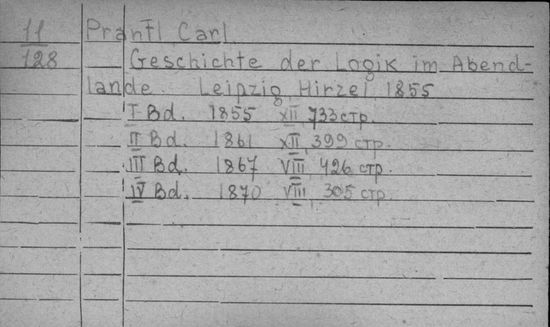 11
128
Prantl Carl
Geschichte der Logik im Abend-
lande. Leipzig, Hirzel 1855
I Bd. 1855 XII, 733 стр.
II Bd. 1861 XII, 399 стр.
III Bd. 1867 VIII, 426 стр.
IV Bd. 1870 VIII, 305 стр.